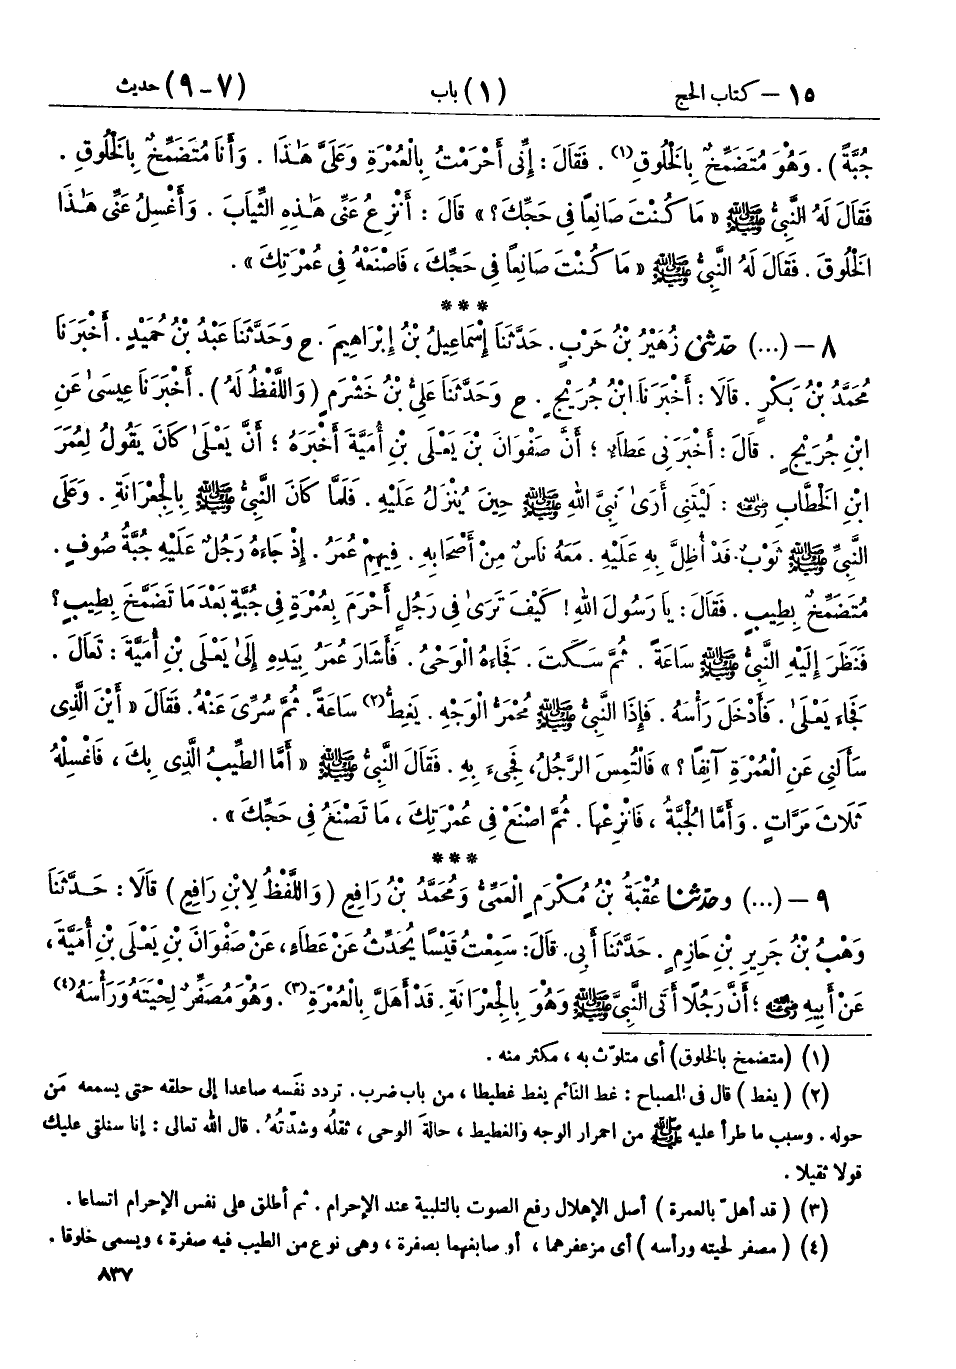 ١٥ – كتاب الحج (١) باب (٧ – ٩) حديث
جُبَّةً ) . وَهُوَ مُتَضَمِّخٌ بِالْخَلُوقِ(١) . فَقَالَ : إِنِّى أَحْرَمْتُ بِالْعُمْرَةِ وَعَلَىَّ هَـٰذَا . وَأَنَا مُتَضَمِّخٌ بِالْخَلُوقِ .
فَقَالَ لَهُ النَّبِىُّ ﷺ « مَا كُنْتَ صَانِعاً فِى حَجِّكَ ؟ » قَالَ : أَنْزِعُ عَنِّى هَـٰذِهِ الثِّيَابَ . وَأَغْسِلُ عَنِّى هَـٰذَا
الْخَلُوقَ . فَقَالَ لَهُ النَّبِىُّ ﷺ « مَا كُنْتَ صَانِعاً فِى حَجِّكَ ، فَاصْنَعْهُ فِى عُمْرَتِكَ » .
***
٨ – (...) حَدَّثَنِى زُهَيْرُ بْنُ حَرْبٍ . حَدَّثَنَا إِسْمَاعِيلُ بْنُ إِبْرَاهِيمَ . ح وَحَدَّثَنَا عَبْدُ بْنُ حُمَيْدٍ . أَخْبَرَنَا
مُحَمَّدُ بْنُ بَكْرٍ . قَالَا : أَخْبَرَنَا ابْنُ جُرَيْجٍ . ح وَحَدَّثَنَا عَلِىُّ بْنُ خَشْرَمٍ ( وَاللَّفْظُ لَهُ ) . أَخْبَرَنَا عِيسَىٰ عَنِ
ابْنِ جُرَيْجٍ . قَالَ : أَخْبَرَنِى عَطَاءٌ ؛ أَنَّ صَفْوَانَ بْنَ يَعْلَى بْنِ أُمَيَّةَ أَخْبَرَهُ ؛ أَنَّ يَعْلَىٰ كَانَ يَقُولُ لِعُمَرَ
ابْنِ الْخَطَّابِ رضي الله عنه : لَيْتَنِى أَرَىٰ نَبِىَّ اللهِ ﷺ حِينَ يُنْزَلُ عَلَيْهِ . فَلَمَّا كَانَ النَّبِىُّ ﷺ بِالْجِعْرَانَةِ . وَعَلَى
النَّبِىِّ ﷺ ثَوْبٌ قَدْ أُظِلَّ بِهِ عَلَيْهِ . مَعَهُ نَاسٌ مِنْ أَصْحَابِهِ . فِيهِمْ عُمَرُ . إِذْ جَاءَهُ رَجُلٌ عَلَيْهِ جُبَّةُ صُوفٍ .
مُتَضَمِّخٌ بِطِيبٍ . فَقَالَ : يَا رَسُولَ اللهِ ! كَيْفَ تَرَىٰ فِى رَجُلٍ أَحْرَمَ بِعُمْرَةٍ فِى جُبَّةٍ بَعْدَ مَا تَضَمَّخَ بِطِيبٍ ؟
فَنَظَرَ إِلَيْهِ النَّبِىُّ ﷺ سَاعَةً . ثُمَّ سَكَتَ . فَجَاءَهُ الْوَحْىُ . فَأَشَارَ عُمَرُ بِيَدِهِ إِلَىٰ يَعْلَى بْنِ أُمَيَّةَ : تَعَالَ .
فَجَاءَ يَعْلَىٰ . فَأَدْخَلَ رَأْسَهُ . فَإِذَا النَّبِىُّ ﷺ مُحْمَرُّ الْوَجْهِ . يَغِطُّ(٢) سَاعَةً . ثُمَّ سُرِّىَ عَنْهُ . فَقَالَ « أَيْنَ الَّذِى
سَأَلَنِى عَنِ الْعُمْرَةِ آنِفًا ؟ » فَالْتُمِسَ الرَّجُلُ ، فَجِىءَ بِهِ . فَقَالَ النَّبِىُّ ﷺ « أَمَّا الطِّيبُ الَّذِى بِكَ ، فَاغْسِلْهُ
ثَلَاثَ مَرَّاتٍ . وَأَمَّا الْجُبَّةُ ، فَانْزِعْهَا . ثُمَّ اصْنَعْ فِى عُمْرَتِكَ ، مَا تَصْنَعُ فِى حَجِّكَ » .
***
٩ – (...) وحَدَّثَنَا عُقْبَةُ بْنُ مُكْرَمٍ الْعَمِّىُّ وَمُحَمَّدُ بْنُ رَافِعٍ ( وَاللَّفْظُ لِابْنِ رَافِعٍ ) قَالَا : حَدَّثَنَا
وَهْبُ بْنُ جَرِيرِ بْنِ حَازِمٍ . حَدَّثَنَا أَبِى . قَالَ : سَمِعْتُ قَيْسًا يُحَدِّثُ عَنْ عَطَاءٍ ، عَنْ صَفْوَانَ بْنِ يَعْلَى بْنِ أُمَيَّةَ ،
عَنْ أَبِيهِ رضي الله عنه ؛ أَنَّ رَجُلًا أَتَى النَّبِىَّ ﷺ وَهُوَ بِالْجِعْرَانَةِ . قَدْ أَهَلَّ بِالْعُمْرَةِ(٣) . وَهُوَ مُصَفِّرٌ لِحْيَتَهُ وَرَأْسَهُ(٤)
(١) (متضمخ بالخلوق) أى متلوّث به ، مكثر منه .
(٢) ( يغط ) قال فى المصباح : غط النائم يغط غطيطا ، من باب ضرب . تردد نفَسه صاعدا إلى حلقه حتى يسمعه مَن
حوله . وسبب ما طرأ عليه ﷺ من احمرار الوجه والغطيط ، حالةَ الوحى ، ثقلُه وشدّتُه . قال الله تعالى : إنا سنلقى عليك
قولا ثقيلا .
(٣) ( قد أهلّ بالعمرة ) أصل الإهلال رفع الصوت بالتلبية عند الإحرام . ثم أطلق على نفس الإحرام اتساعا .
(٤) ( مصفر لحيته ورأسه ) أى مزعفرهما ، أو صابغهما بصفرة ، وهى نوع من الطيب فيه صفرة ، ويسمى خلوقا .
٨٣٧